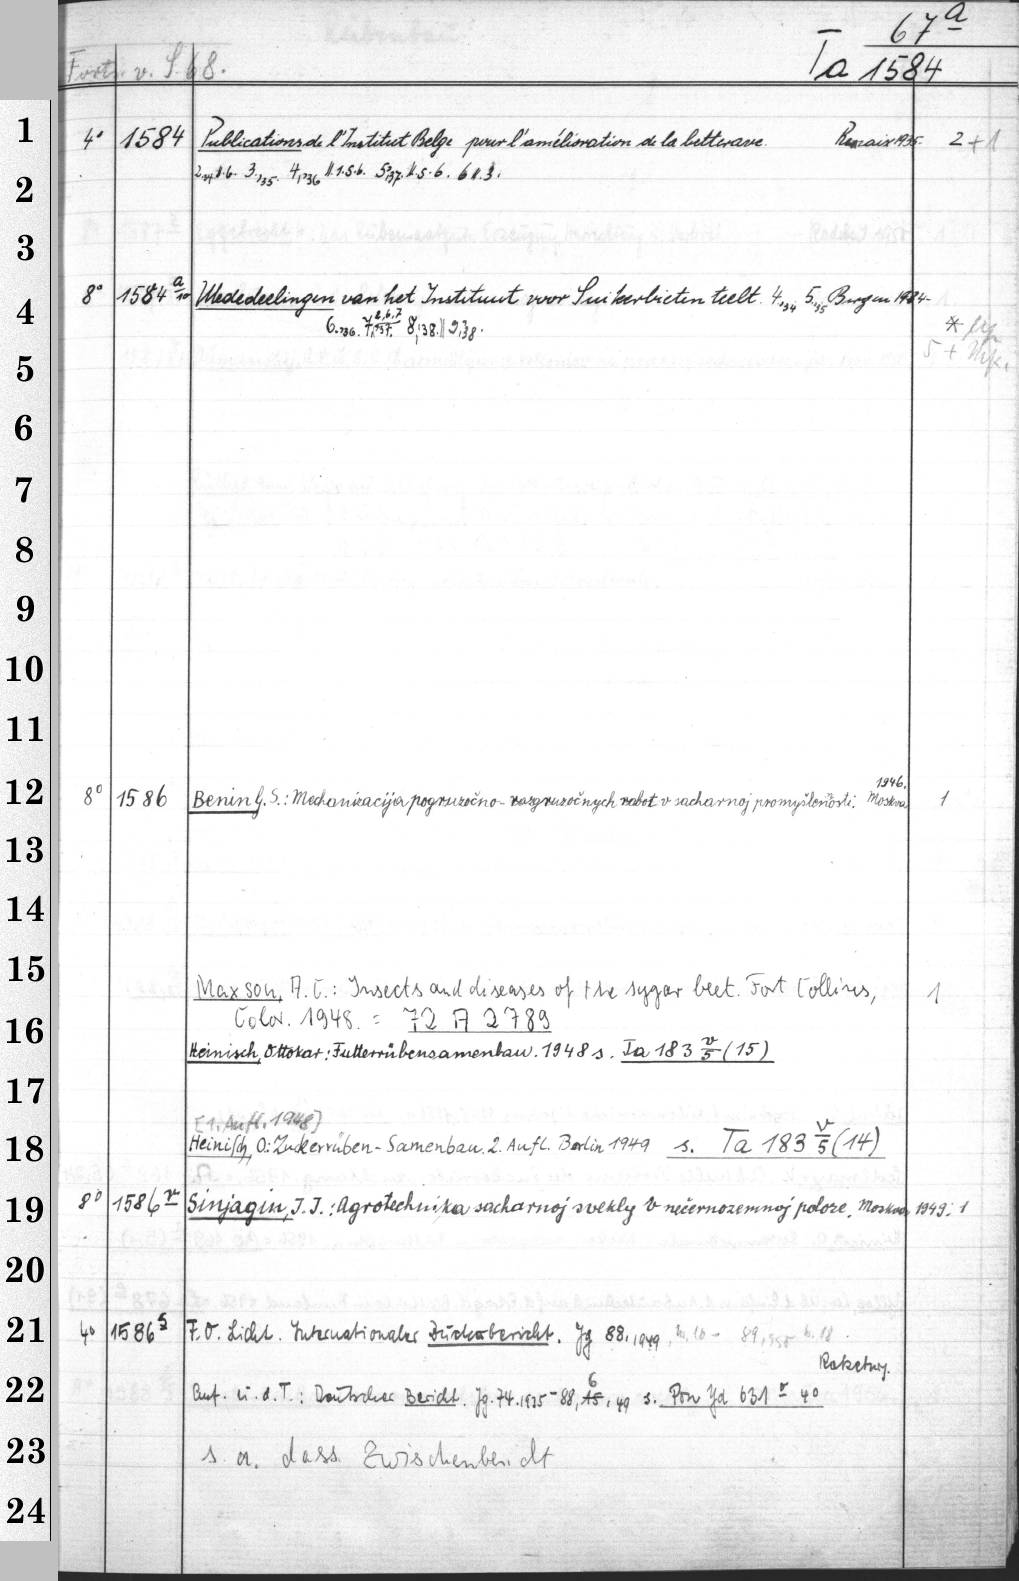 67a
Forts. v. S. 68. Ta 1584
1 4° 1584 Publications de l'Institut Belge pour l'amélioration de la betterave. Renaix 1935. 2 + 1
2
3
8° 1584 a/10 Mededeelingen van het Instituut voor Suikerbieten teelt. 4,34 5,35 Bergen 1934-
4 6,36. 7,37. 8,38. || 9,38. *
5 5 +
6
7
8
9
10
11
1946.
12 8° 1586 Benin G. S.: Mechanizacija pogruzočno-razgruzočnych rabot v sacharnoj promyšlennosti. Moskva 1
13
14
15 Maxson, A. C.: Insects and diseases of the sygar beet. Fort Collins, 1
16 Color. 1948. = 72 A 2789
Heinisch, Ottokar: Futterrübensamenbau. 1948 s. Ta 183 v/5 (15)
17
[1. Aufl. 1948]
18 Heinisch, O: Zuckerrüben-Samenbau. 2. Aufl. Berlin 1949 s. Ta 183 v/5 (14)
19 8° 1586 v Sinjagin, I. I.: Agrotechnika sacharnoj svekly v nečernozemnoj poloze. Moskva 1949. 1
20
21 4° 1586 s F. O. Licht. Internationaler Zuckerbericht. Jg 88,1949
Ratzebg.
22 Anf. u. d. T.: Deutscher Bericht. Jg. 74.1935-88, 49 s. Per Yd 631 r 4°
23 s. a. dass. Zwischenbericht
24